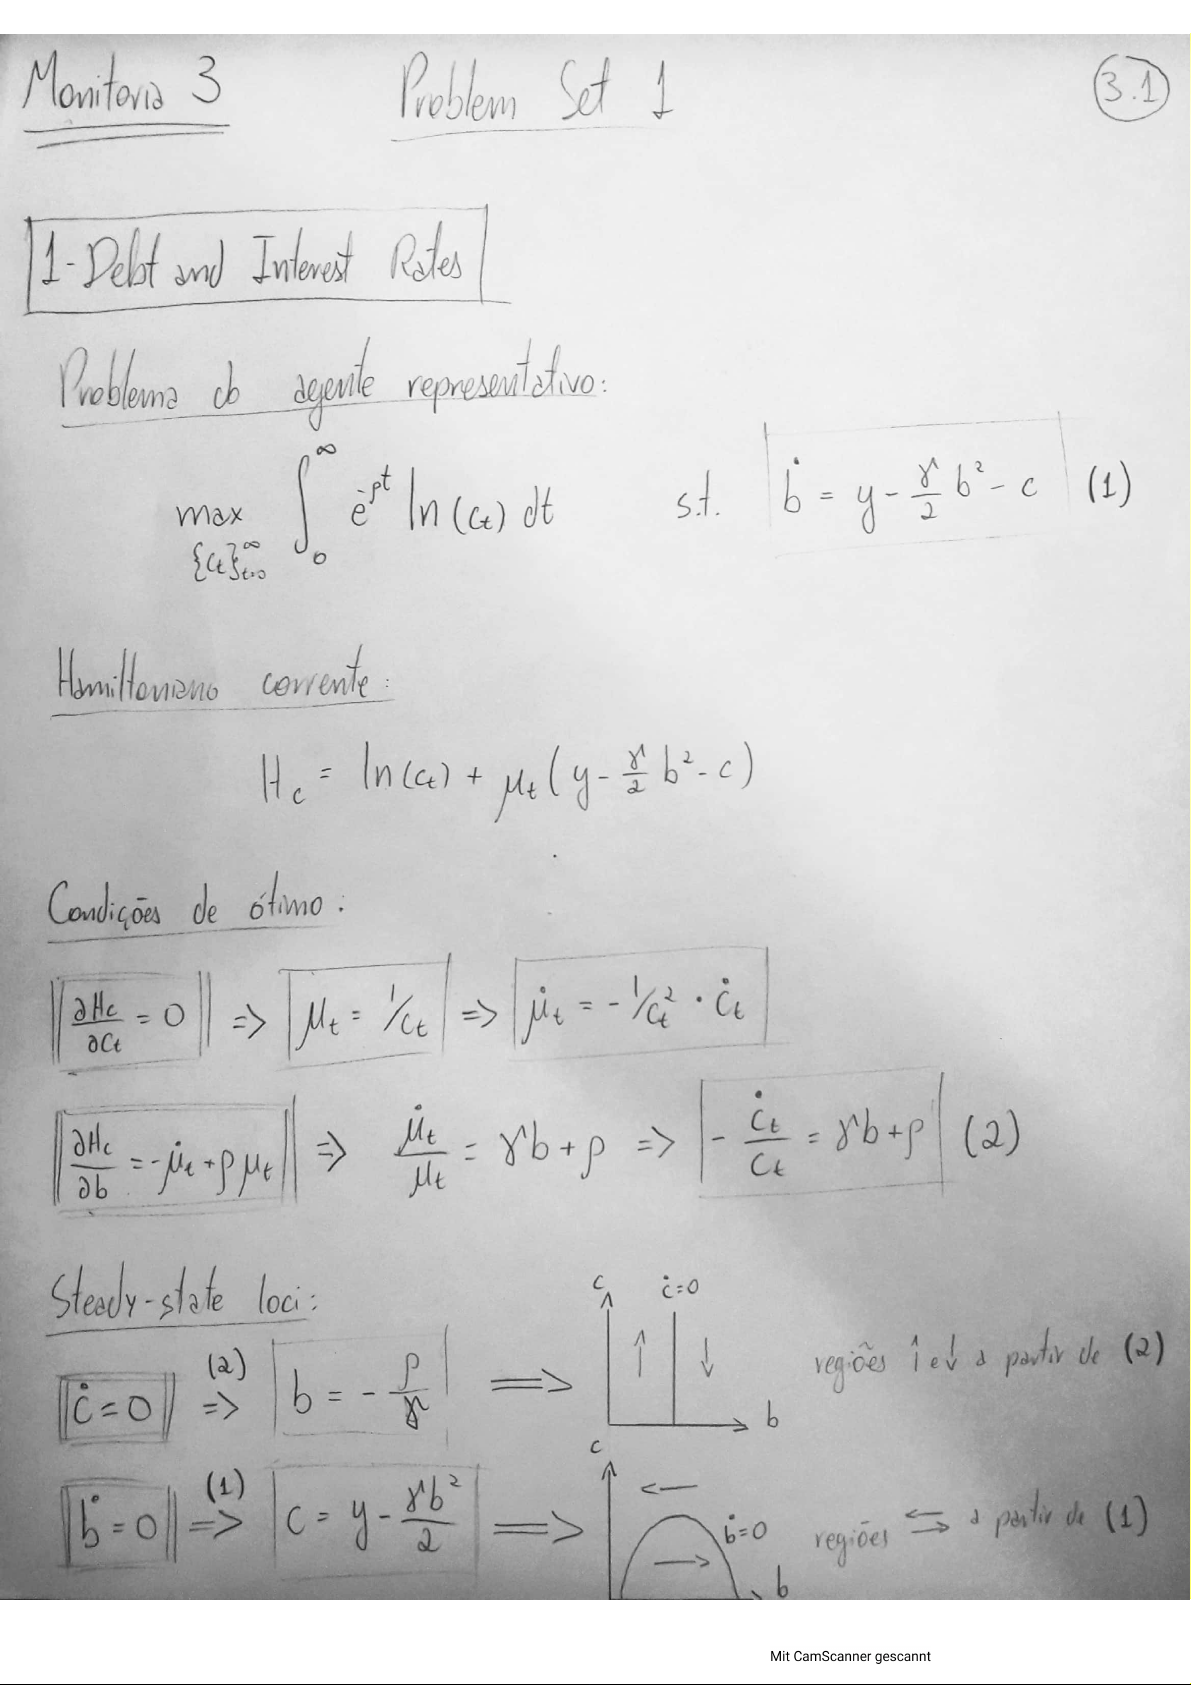 Monitoria 3 Problem Set 1 3.1
1-Debt and Interest Rates
Problema do agente representativo:
max {c_t}_{t=0}^∞ ∫_0^∞ e^{-ρt} ln(c_t) dt s.t. ḃ = y - γ/2 b² - c (1)
Hamiltoniano corrente:
H_c = ln(c_t) + μ_t (y - γ/2 b² - c)
Condições de ótimo:
∂H_c/∂c_t = 0 => μ_t = 1/c_t => μ̇_t = - 1/c_t² · ċ_t
∂H_c/∂b = -μ̇_t + ρ μ_t => μ̇_t/μ_t = γb + ρ => - ċ_t/c_t = γb + ρ (2)
Steady-state loci:
c ċ=0
ċ = 0 (2) => b = - ρ/γ => ↑ ↓ b regiões ↑ e ↓ a partir de (2)
c
ḃ = 0 (1) => c = y - γb²/2 => ← → ḃ=0 b regiões ⇆ a partir de (1)
Mit CamScanner gescannt